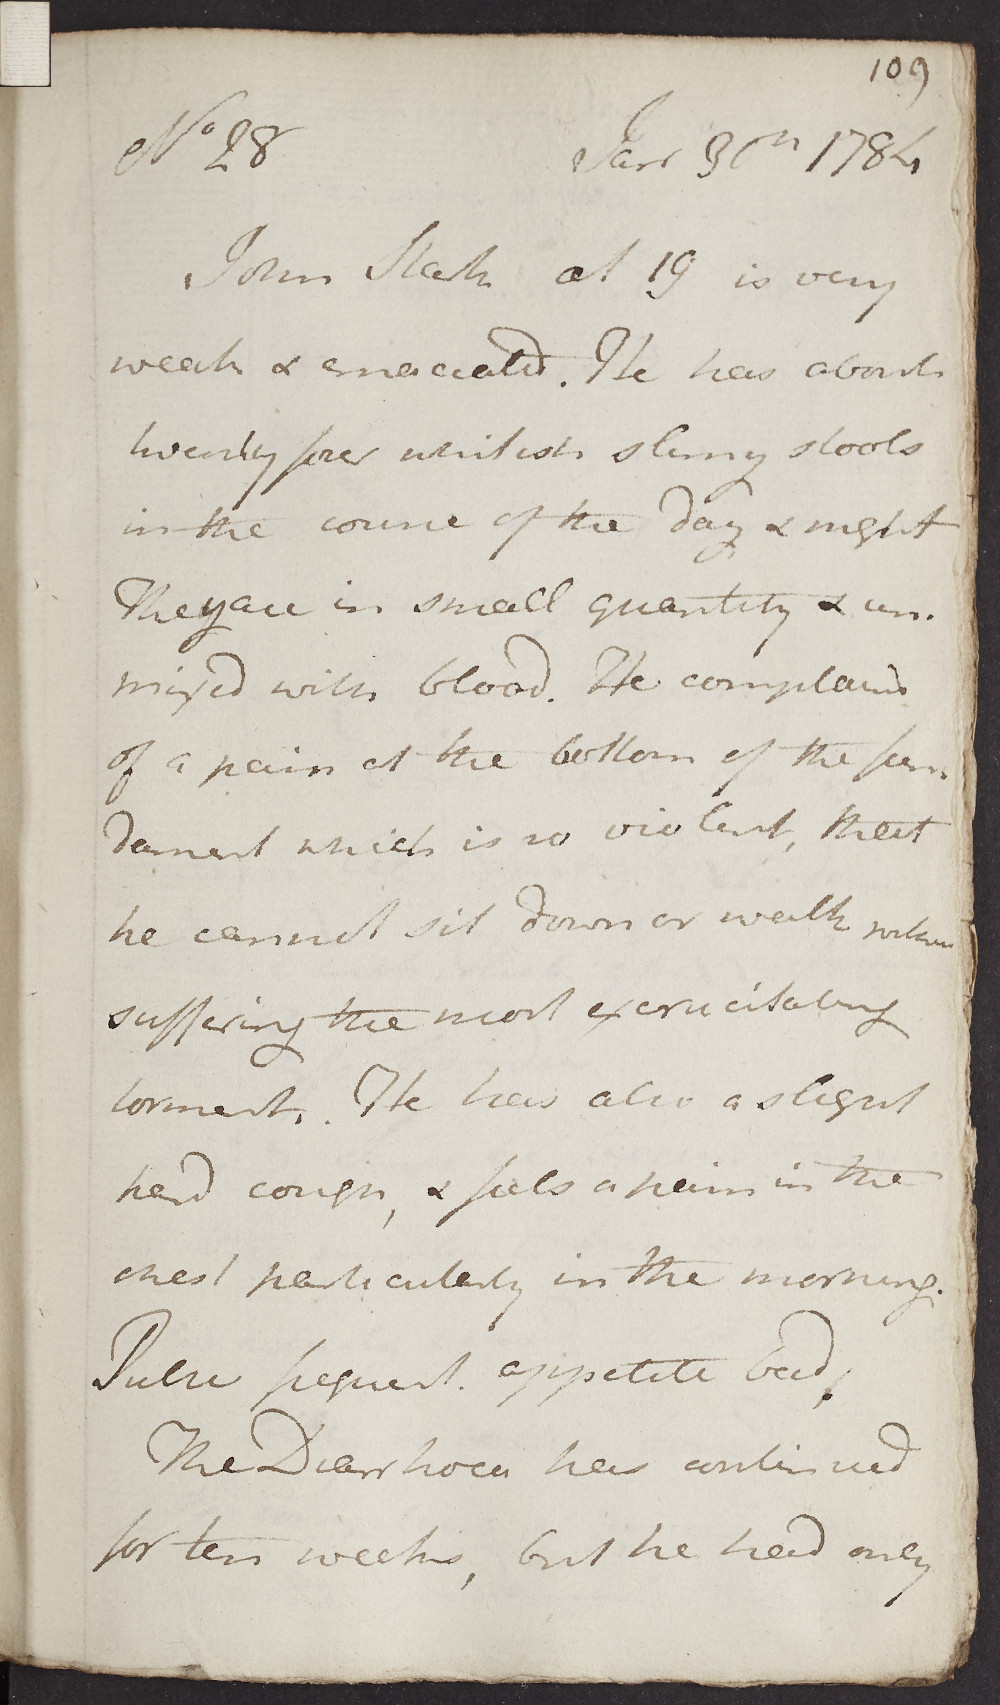 109
No 28 Jan 30th 1784
John at 19 is very
weak & emaciated. He has about
twenty four whitish slimy stools
in the course of the day & night
They are in small quantity & un-
mixed with blood. He complains
of a pain at the bottom of the fun-
dament which is so violent, that
he cannot sit down or walk without
suffering the most excrucitating
torment. He has also a slight
hard cough, & feels a pain in the
chest particularly in the morning.
Pulse frequent. appetite bad.
The Diarrhoea has continued
for ten weeks, but he had only